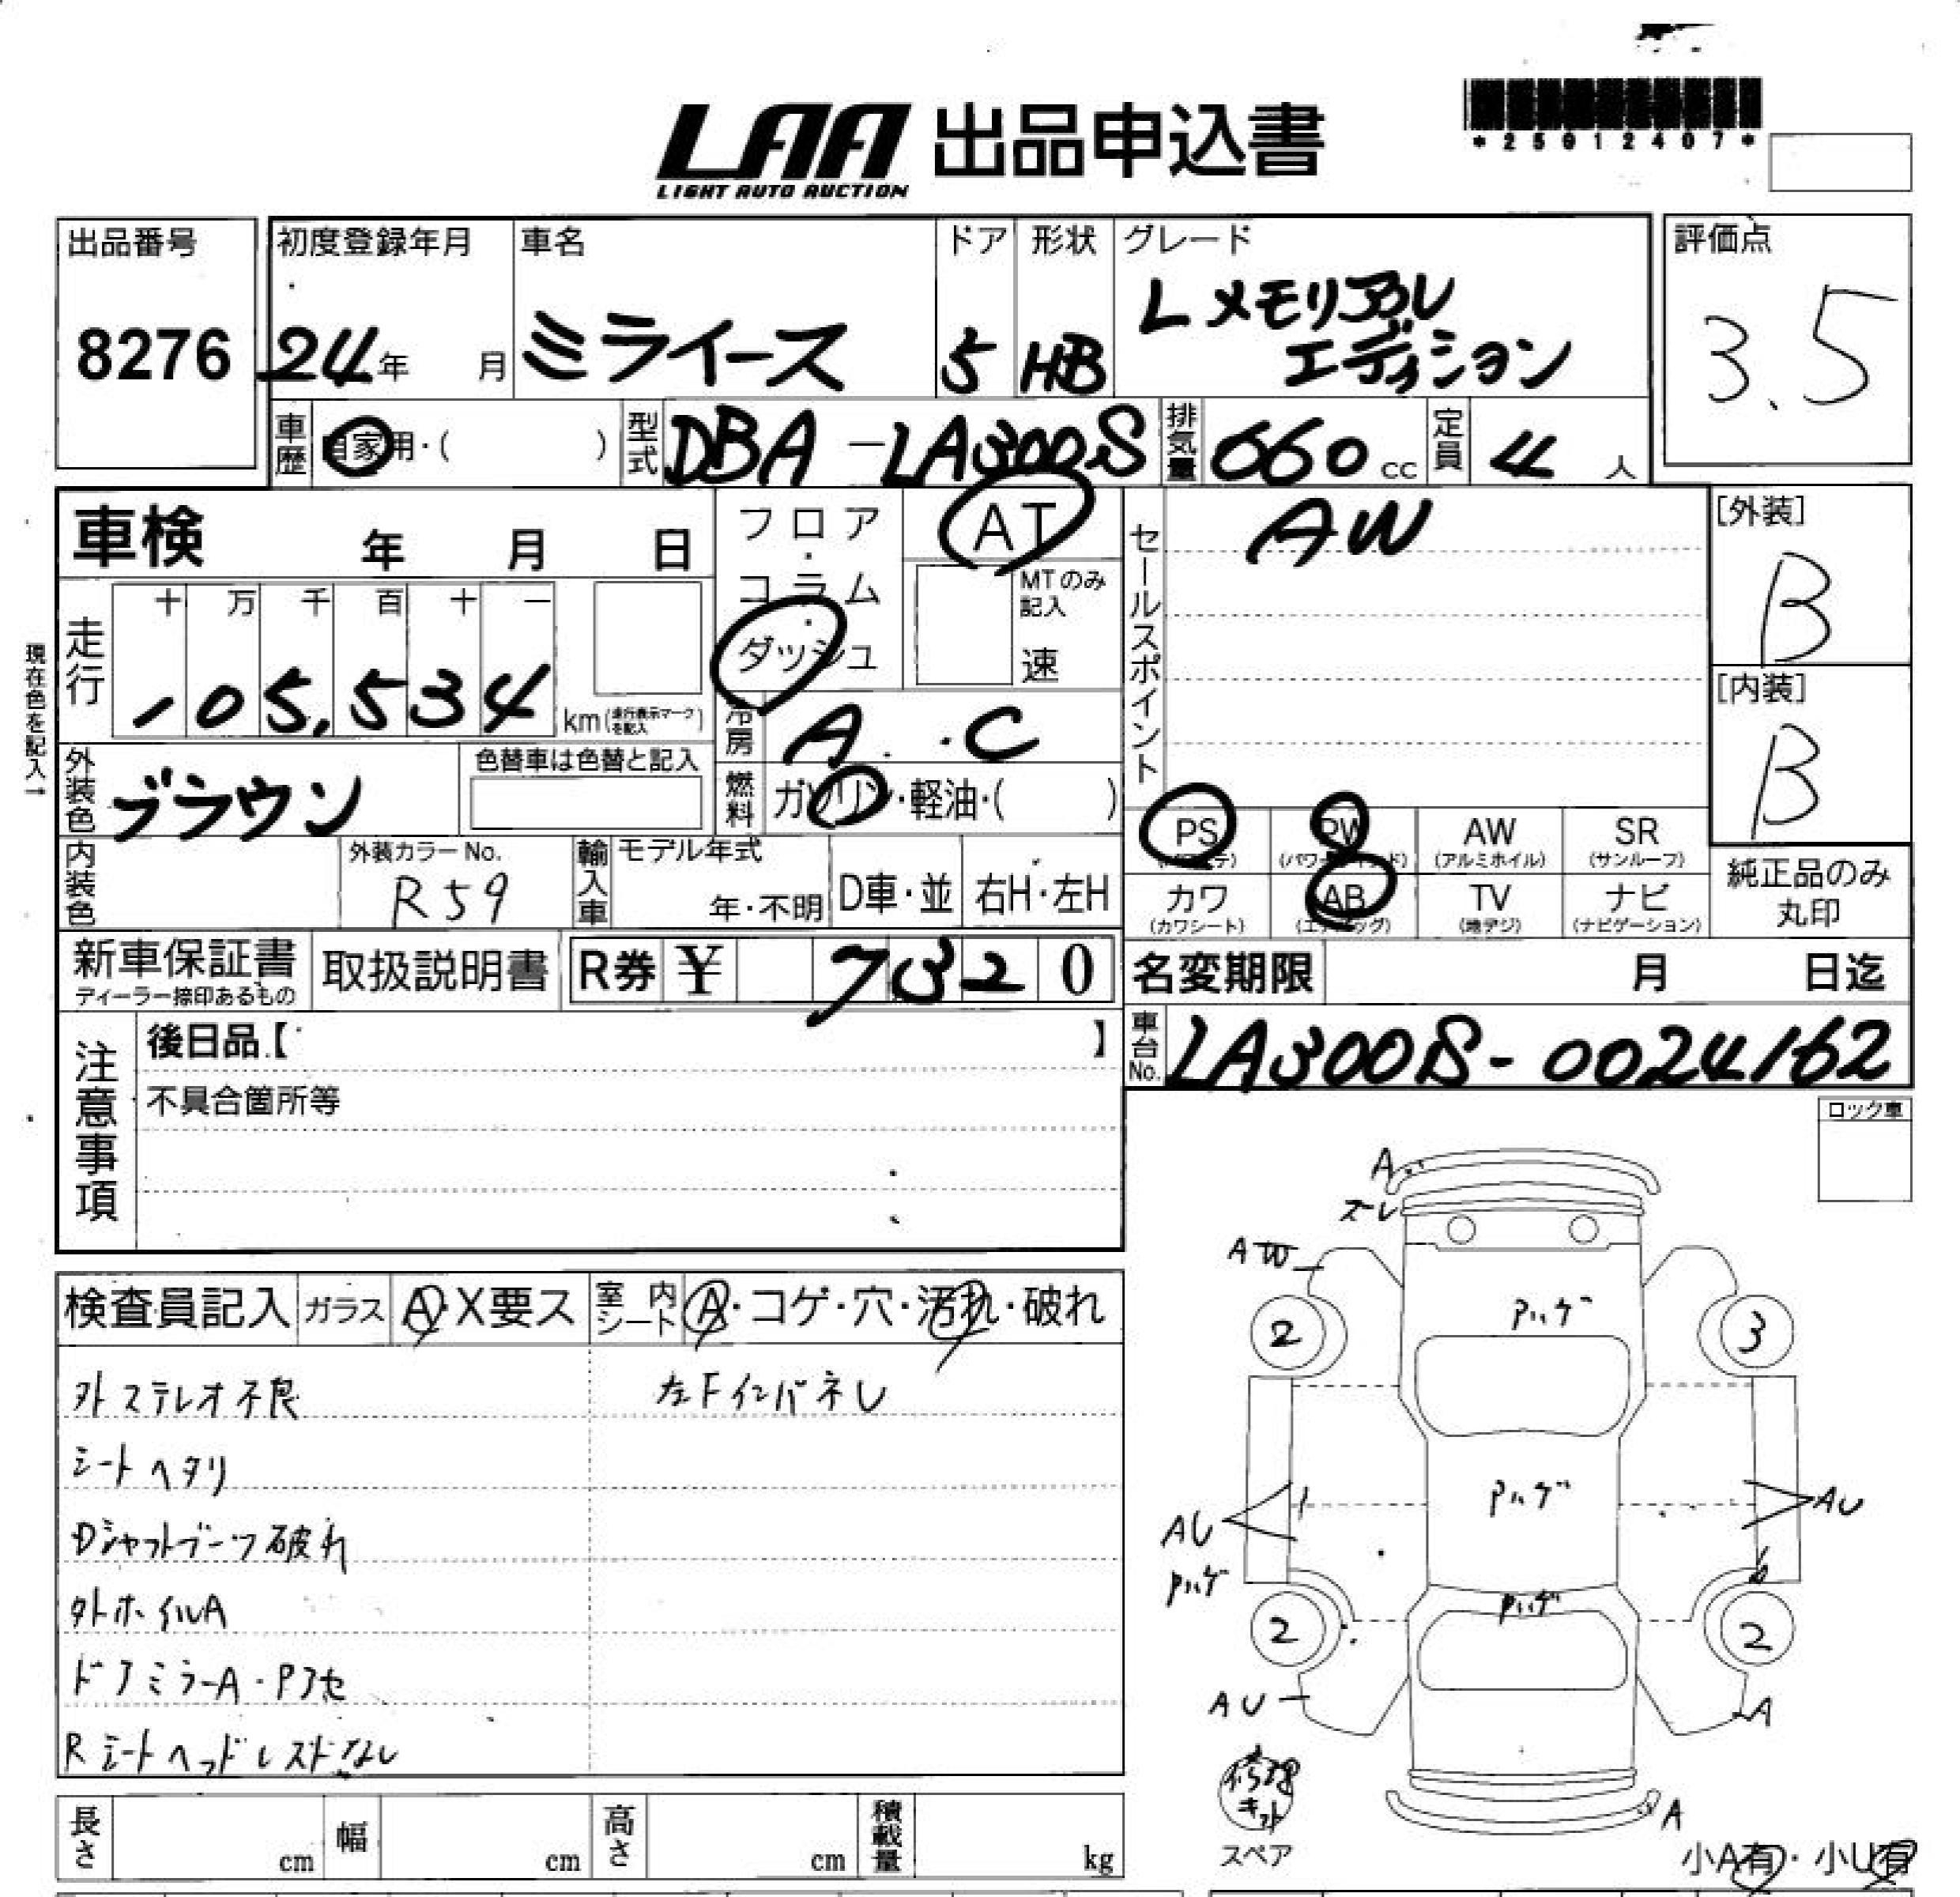 *25012407*
LAA 出品申込書
LIGHT AUTO AUCTION
出品番号 初度登録年月 車名 ドア 形状 グレード 評価点
8276 24年 月 ミライース 5 HB Lメモリアル
エディション 3.5
車歴 自家用・( ) 型式 DBA-LA300S 排気量 660cc 定員 4人
車検 年 月 日 フロア・コラム・ダッシュ AT セールスポイント AW [外装]
B
MTのみ記入
速
走行 十 万 千 百 十 一
105,534 km(走行表示マークを記入)
現在色を記入→
冷房 A.C [内装]
B
外装色 ブラウン 色替車は色替と記入 燃料 ガソリン・軽油・( )
PS(パワステ) PW(パワーウインド) AW(アルミホイル) SR(サンルーフ)
内装色 外装カラーNo. R59 輸入車 モデル年式 年・不明 D車・並 右H・左H
カワ(カワシート) AB(エアバッグ) TV(地デジ) ナビ(ナビゲーション) 純正品のみ丸印
新車保証書 取扱説明書 R券 ¥ 7320 名変期限 月 日迄
ディーラー捺印あるもの
注意事項 後日品【 】 車台No. LA300S-0024162
不具合箇所等
ロック車
検査員記入 ガラス A・X要ス 室内シート A・コゲ・穴・汚れ・破れ
外ステレオ不良 左Fインパネレ
シートヘタリ
Dシャフトブーツ破れ
外ホイルA
ドアミラーA・Pアセ
RシートヘッドレストなL
A
ズレ
AW
Pハゲ
2 3
Pハゲ
AU AU
Pハゲ
Pハゲ
2 2
AU A
修理キット
スペア
A
小A有・小U有
長さ cm 幅 cm 高さ cm 積載量 kg